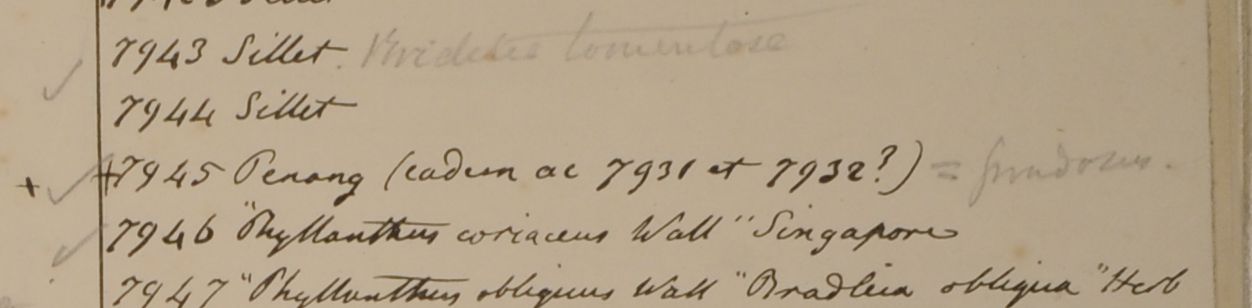 7943 Sillet. Bridelia tomentosa
7944 Sillet
+ +7945 Penang (eadem ac 7931 et 7932?) = frondosus.
7946 "Phyllanthus coriaceus Wall" Singapore
7947 "Phyllanthus obliquus Wall" Bradleia obliqua "Herb